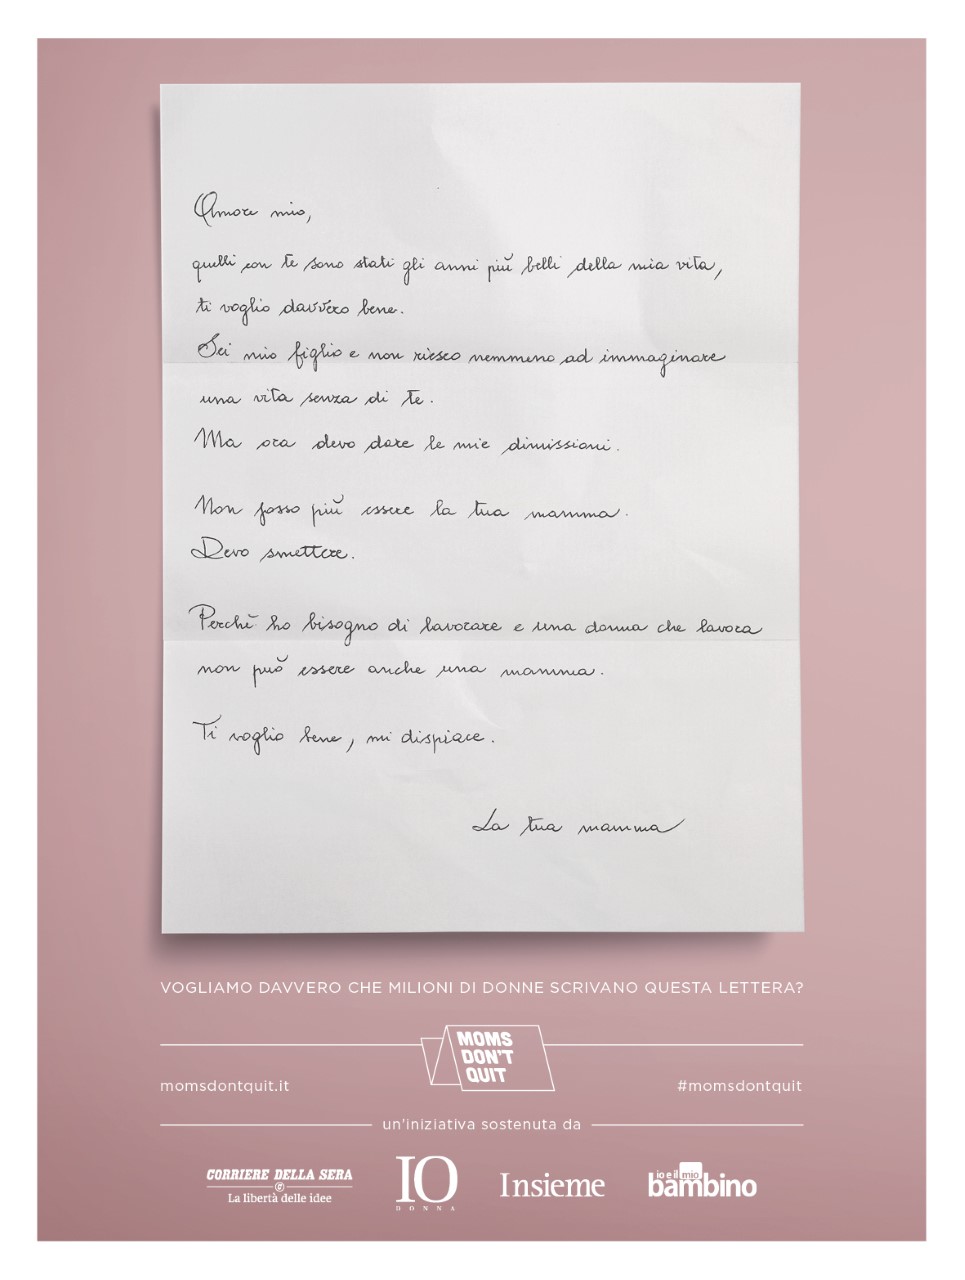 Amore mio,
quelli con te sono stati gli anni più belli della mia vita,
ti voglio davvero bene.
Sei mio figlio e non riesco nemmeno ad immaginare
una vita senza di te.
Ma ora devo dare le mie dimissioni.
Non posso più essere la tua mamma.
Devo smettere.
Perchè ho bisogno di lavorare e una donna che lavora
non può essere anche una mamma.
Ti voglio bene, mi dispiace.
La tua mamma
VOGLIAMO DAVVERO CHE MILIONI DI DONNE SCRIVANO QUESTA LETTERA?
MOMS
DON'T
QUIT
momsdontquit.it #momsdontquit
un'iniziativa sostenuta da
CORRIERE DELLA SERA
La libertà delle idee
IO
DONNA
Insieme
io e il mio
bambino